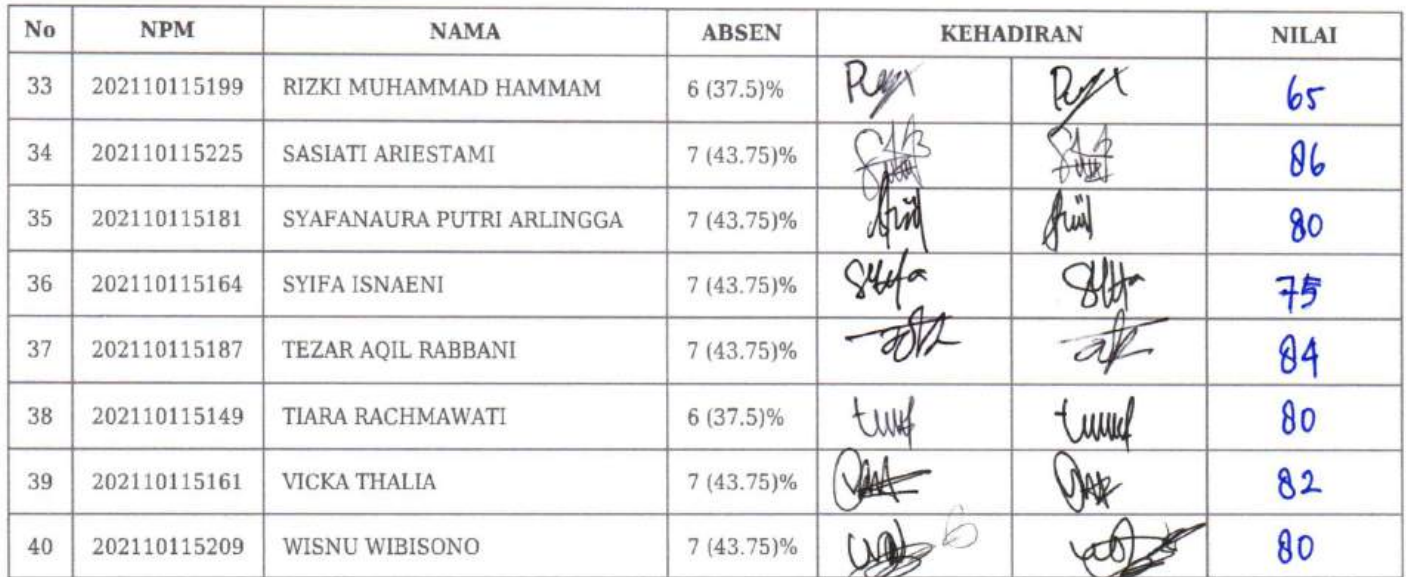 No NPM NAMA ABSEN KEHADIRAN NILAI
33 202110115199 RIZKI MUHAMMAD HAMMAM 6 (37.5)% 65
34 202110115225 SASIATI ARIESTAMI 7 (43.75)% 86
35 202110115181 SYAFANAURA PUTRI ARLINGGA 7 (43.75)% 80
36 202110115164 SYIFA ISNAENI 7 (43.75)% 75
37 202110115187 TEZAR AQIL RABBANI 7 (43.75)% 84
38 202110115149 TIARA RACHMAWATI 6 (37.5)% 80
39 202110115161 VICKA THALIA 7 (43.75)% 82
40 202110115209 WISNU WIBISONO 7 (43.75)% 80